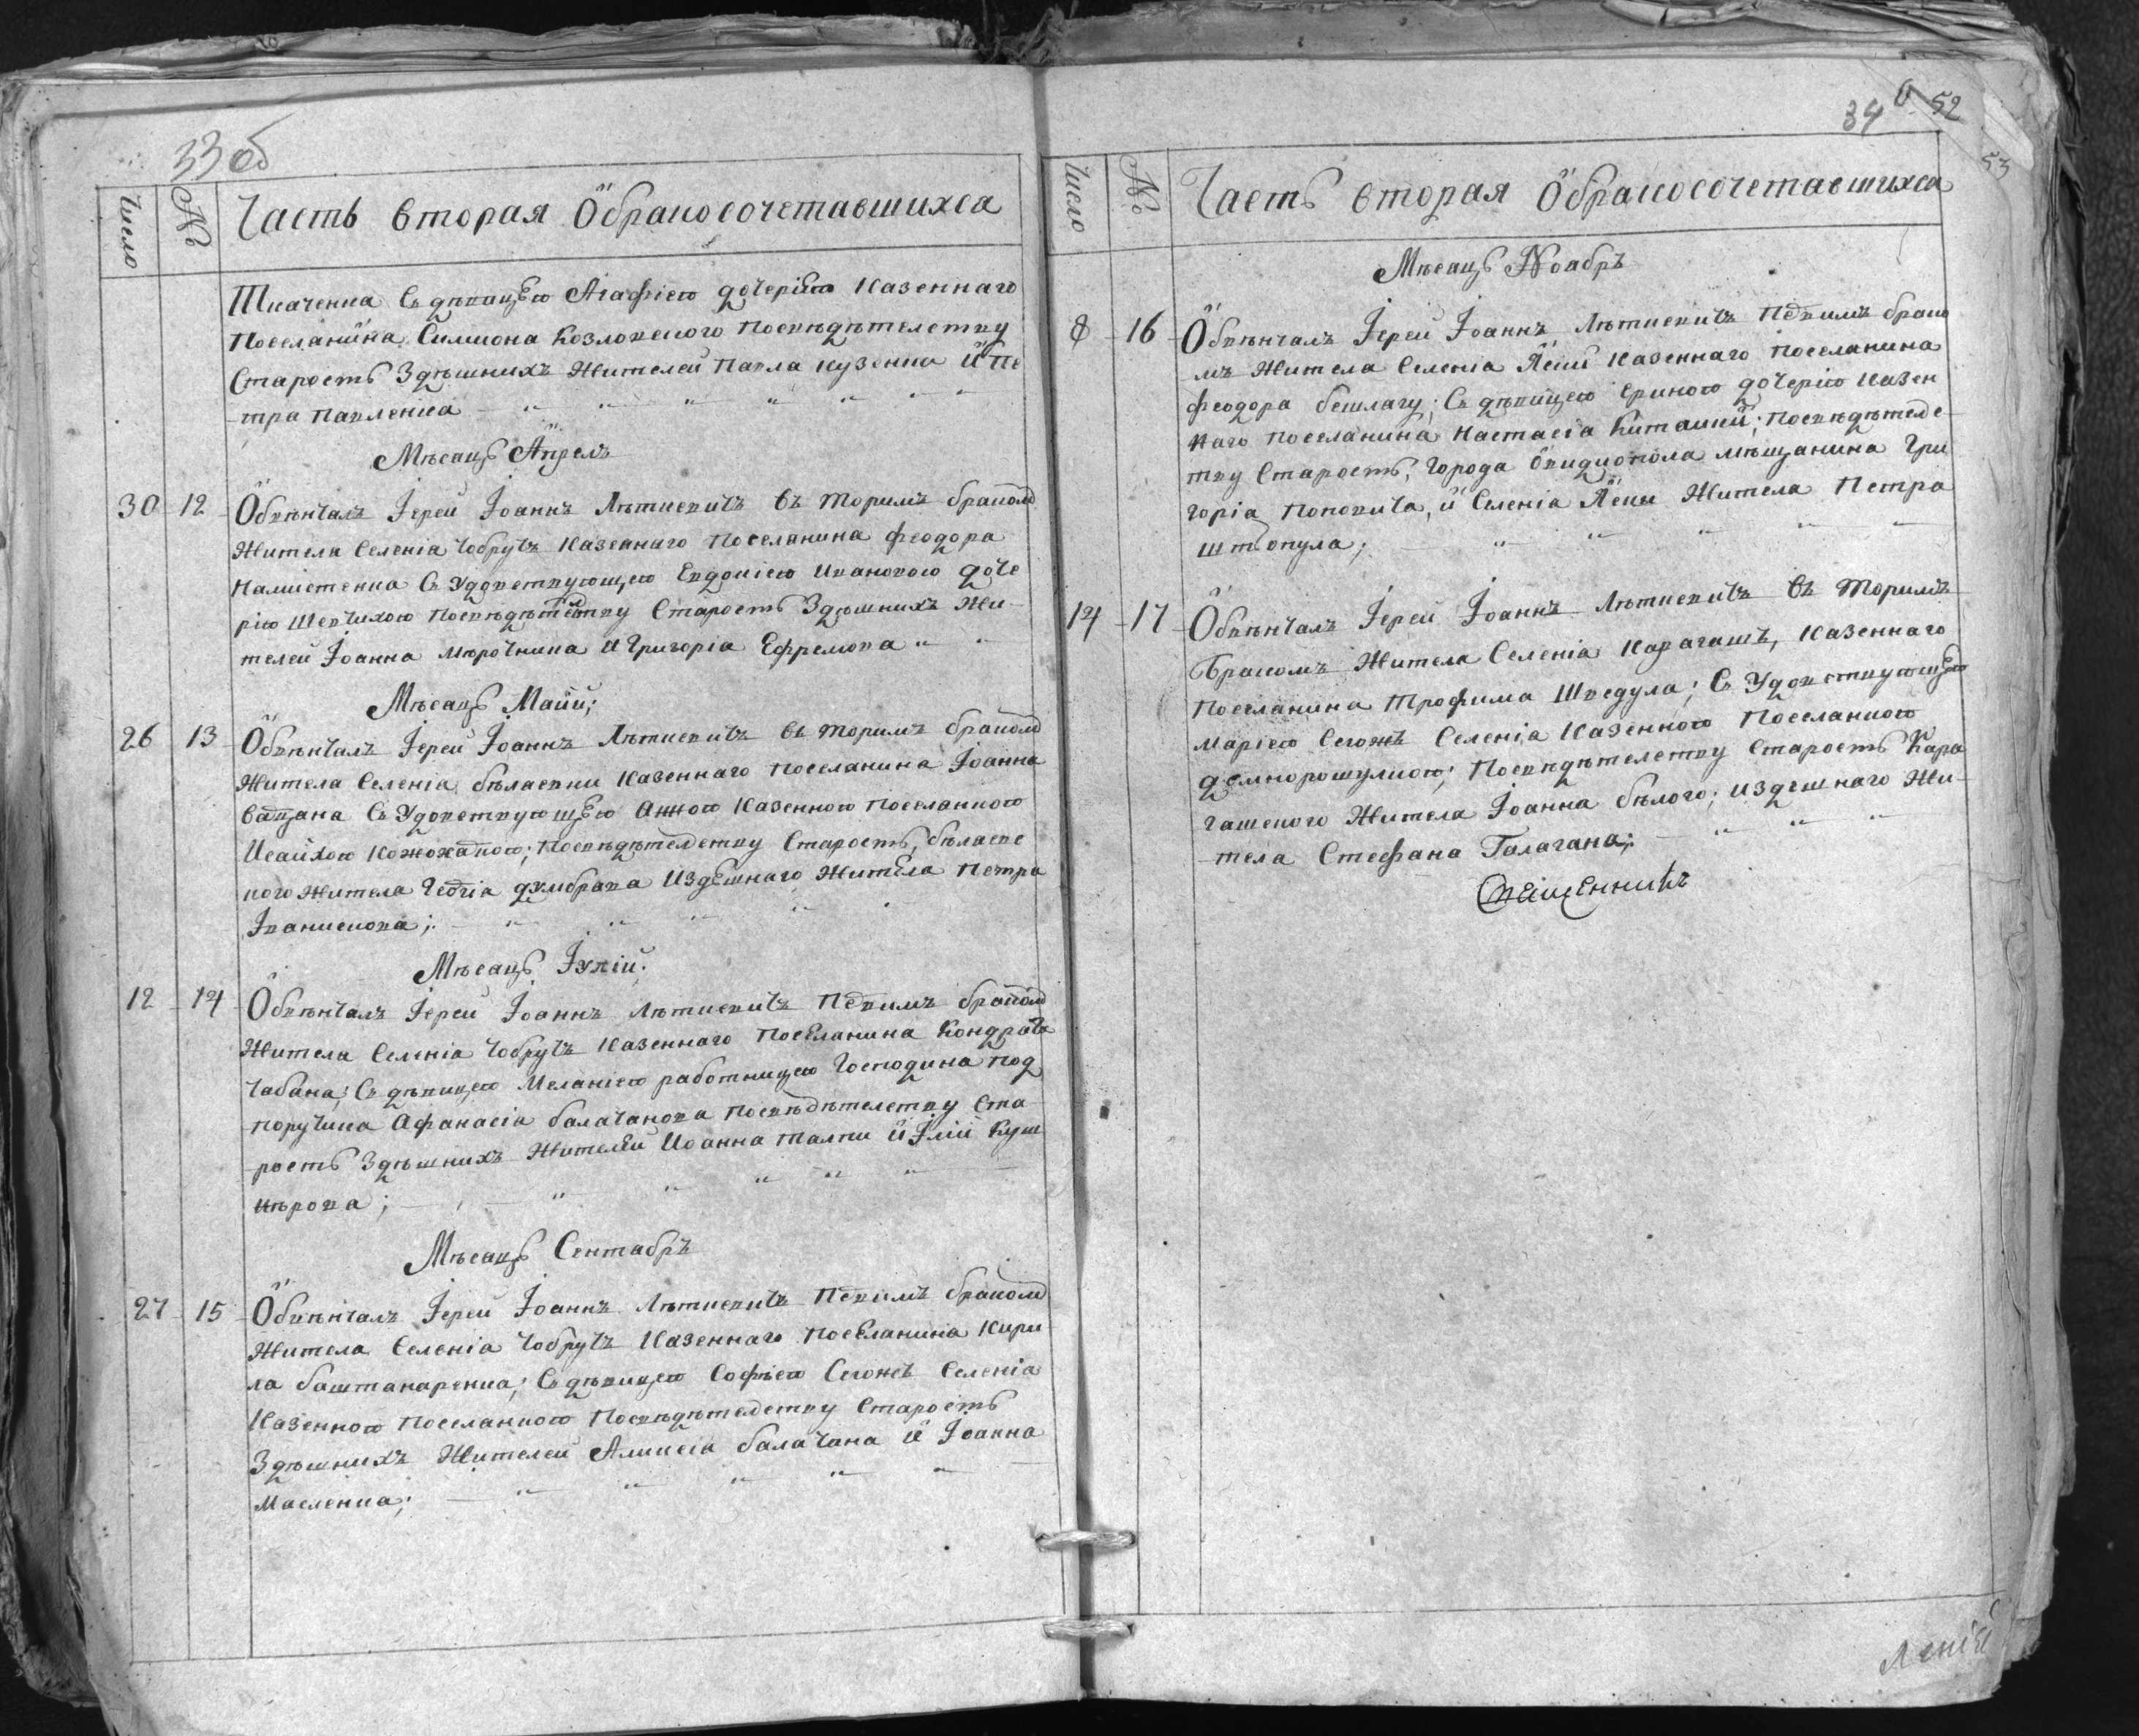 33 об
Число
№
Часть вторая Обракосочетавшихся
Ткаченка Съ дѣвицею Агафіею дочерію казеннаго
Поселянина Симиона Козловского Посвѣдѣтелству
Старостъ Здѣшнихъ Жителей Павла кузенка и Пе
тра Павленка
Мѣсацъ Апрелъ
30 12 Обвѣнчалъ Іерей Іоаннъ Лѣткевичъ Въ торимъ бракомъ
Жителя Селенія Чобручъ казеннаго Поселянина Феодора
Памѣстенка Съ Удовствующею Евдокіею Ивановою доче
рію Шевчихою Посвѣдѣтелству Старостъ Здѣшнихъ Жи
телей Іоанна Мѣрочника и Григорія Ефремова
Мѣсацъ Маий;
26 13 Обвѣнчалъ Іерей Іоаннъ Лѣткевичъ Въ торимъ бракомъ
Жителя Селенія бѣлаевки казеннаго Поселянина Іоанна
Ващана Съ Удовствующею Анною казенною Поселянкою
Исайхою Кожокапою; Посвѣдѣтелству Старостъ, бѣлаевс
кого Жителя Георгія думбрава Издешнаго Жителя Петра
Іванискова;
Мѣсацъ Іулій.
12 14 Обвѣнчалъ Іерей Іоаннъ Лѣткевичъ Первимъ бракомъ
Жителя Селенія Чобручъ казеннаго Поселянина Кондрата
Чабана; Съ дѣвицею Меланіею работницею Господина Под
поручика Афанасія балачанова Посвѣдѣтелству Ста
ростъ Здѣшнихъ Жителей Иоанна талпи и Іліи Куш
нѣрова;
Мѣсацъ Сентабръ
27 15 Обвѣнчалъ Іерей Іоаннъ Лѣткевичъ Первимъ бракомъ
Жителя Селенія Чобручъ казеннаго Поселянина Кири
ла баштанаренка; Съ дѣвицею Софѣею Сегожъ Селенія
казенною Поселанкою Посвѣдѣтелству Старостъ
Здѣшнихъ Жителей Алексія балачана и Іоанна
Масленка;
34 52
53
Число
№
Часть вторая Обракосочетавшихся
Мѣсацъ Ноабръ
8 16 Обвѣнчалъ Іерей Іоаннъ Лѣткевичъ Первимъ брако
мъ Жителя Селенія Яски казеннаго Поселянина
Феодора бешлагу; Съ дѣвицею Ериною дочерію казен
наго Поселянина Настасія Китаики; Посвѣдѣтелс
тву Старостъ, города Овидиопола мѣщанина Гри
горія Поповича, и Селенія Яски Жителя Петра
штопула;
14 17 Обвѣнчалъ Іерей Іоаннъ Лѣткевичъ Въ торимъ
Бракомъ Жителя Селенія Карагашъ, казеннаго
Поселянина Трофима Шведула; Съ Удовствующею
Маріею Сегожъ Селенія казенною Поселанкою
демнорошулкою; Посвѣдѣтелству Старостъ Кара
гашского Жителя Іоанна бѣлого; издешнаго Жи
теля Стефана Галагана;
Священникъ